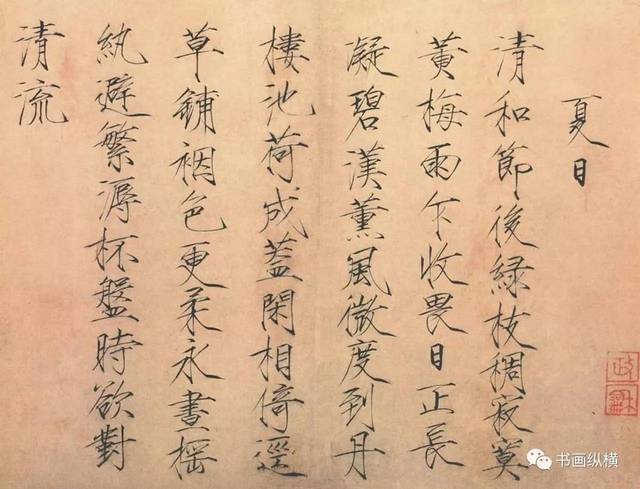 夏日
清和節後緑枝稠寂寞
黃梅雨乍收畏日正長
凝碧漢薰風微度到丹
樓池荷成蓋閑相倚逕
草鋪裀色更柔永晝搖
紈避繁溽杯盤時欲對
清流
书画纵横